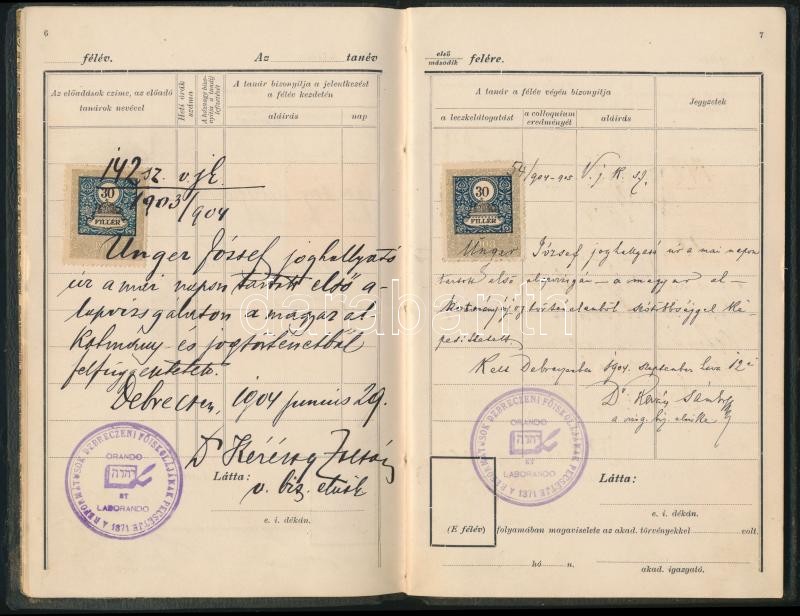 6
félév. Az tanév
Az előadások czíme, az előadó tanárok nevével
Heti órák száma
A tanár bizonyitja a jelentkezést a félév kezdetén
aláírás
nap
142 sz. v. jk.
1903/1904
30
FILLÉR
Unger József joghallgató
úr a mai napon tartott első a-
lapvizsgálaton a magyar al-
kotmány- és jogtörténetből
felfüggesztetett.
Debreczen, 1904 junius 29.
Dr Kérészy Zoltán
v. biz. elnök
Látta:
e. i. dékán.
A REFORMÁTUSOK DEBRECZENI FŐISKOLÁJÁNAK PECSÉTJE
ORANDO
ET
LABORANDO
1871
7
első
második felére.
A tanár a félév végén bizonyitja
a leczkelátogatást
a colloquium eredményét
aláírás
Jegyzetek
54/1904-905 V. j. k. sz.
30
FILLÉR
Unger József joghallgató úr a mai napon
tartott első alapvizsgán – a magyar al-
kotmány és jogtörténetből
Kelt Debreczenben 1904. september hava 12én
Dr
Látta:
e. i. dékán.
A REFORMÁTUSOK DEBRECZENI FŐISKOLÁJÁNAK PECSÉTJE
ORANDO
ET
LABORANDO
1871
(E félév) folyamában magaviselete az akad. törvényekkel volt.
hó n.
akad. igazgató.
darabanth